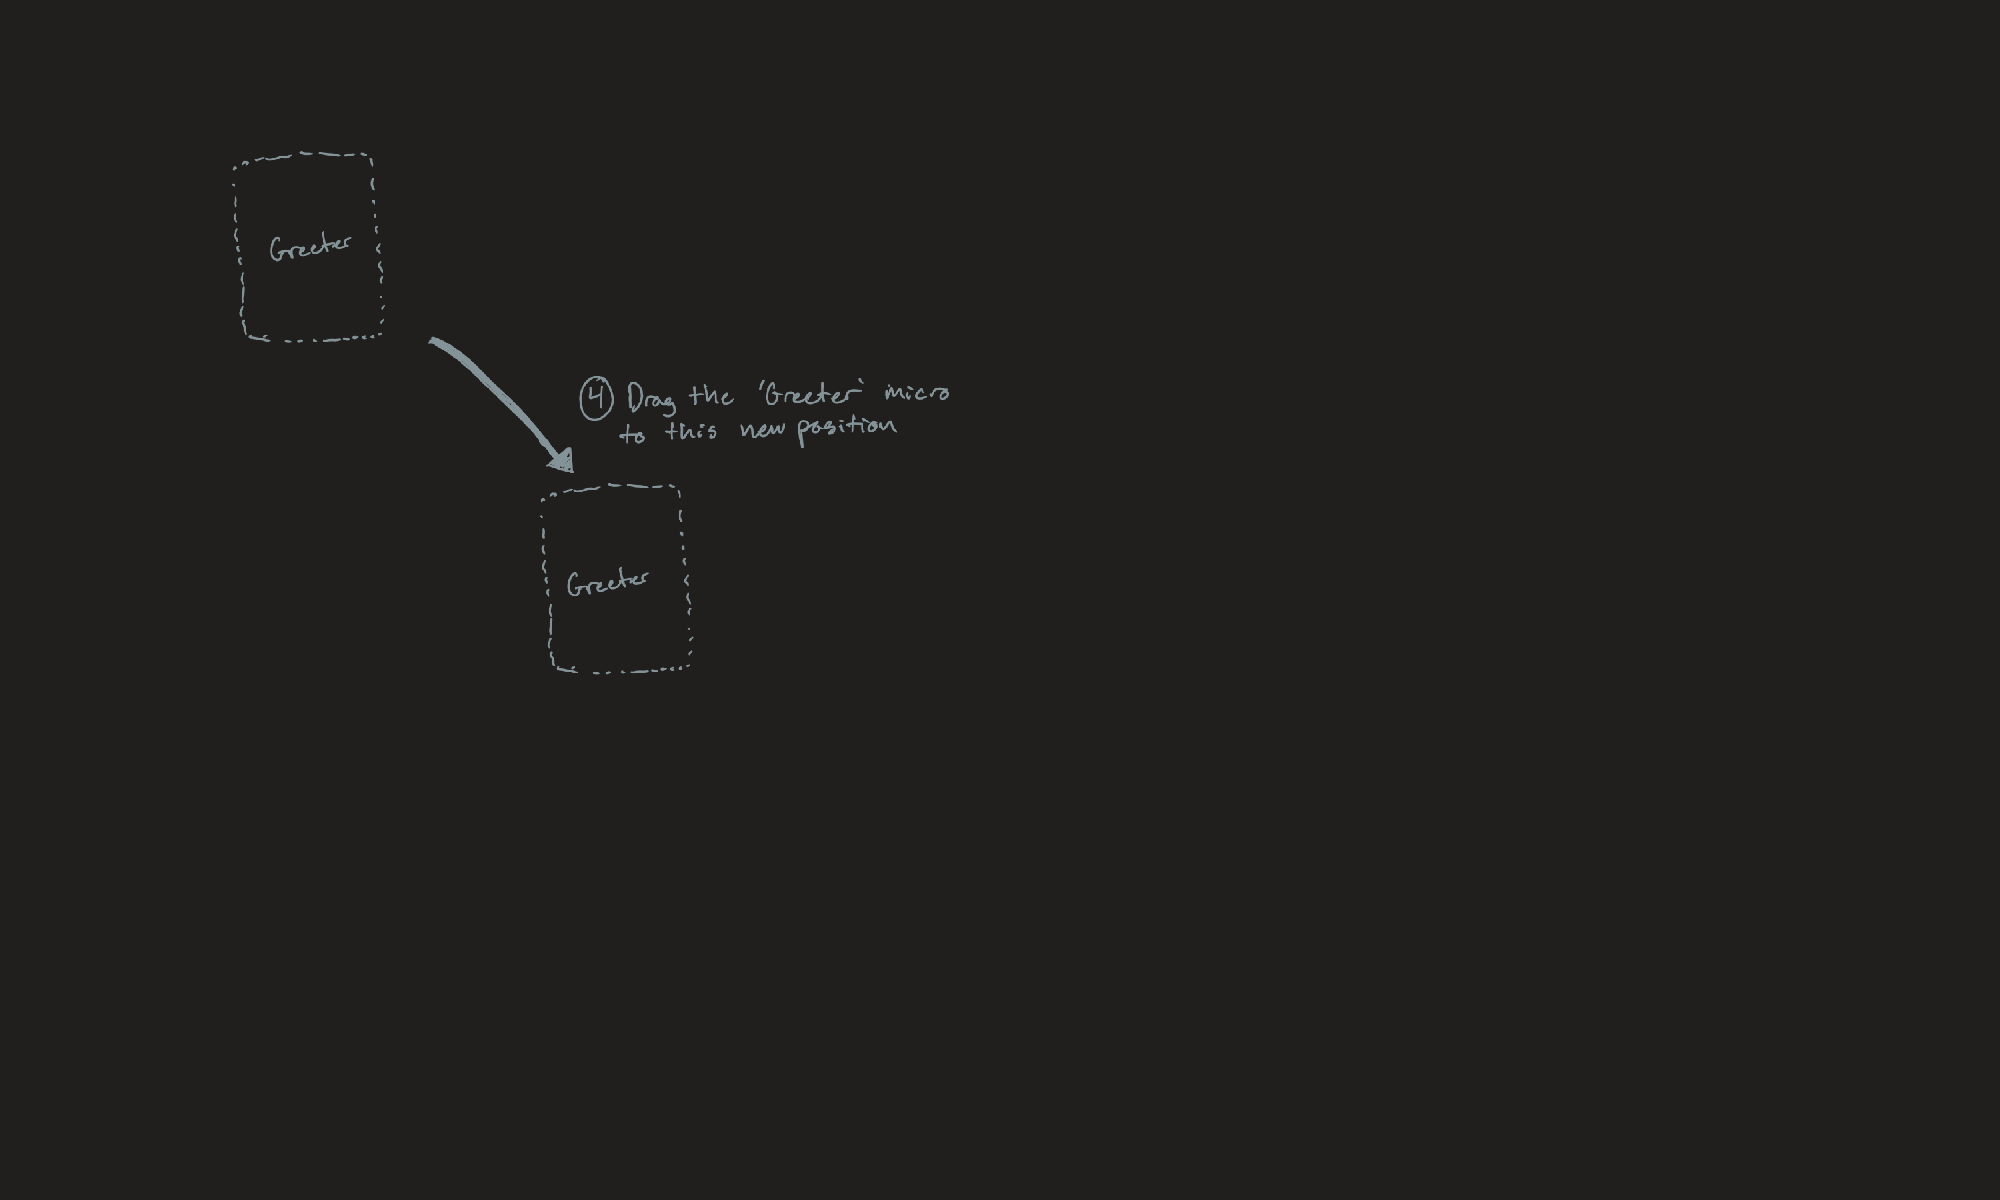 Greeter
④ Drag the 'Greeter' micro
to this new position
Greeter